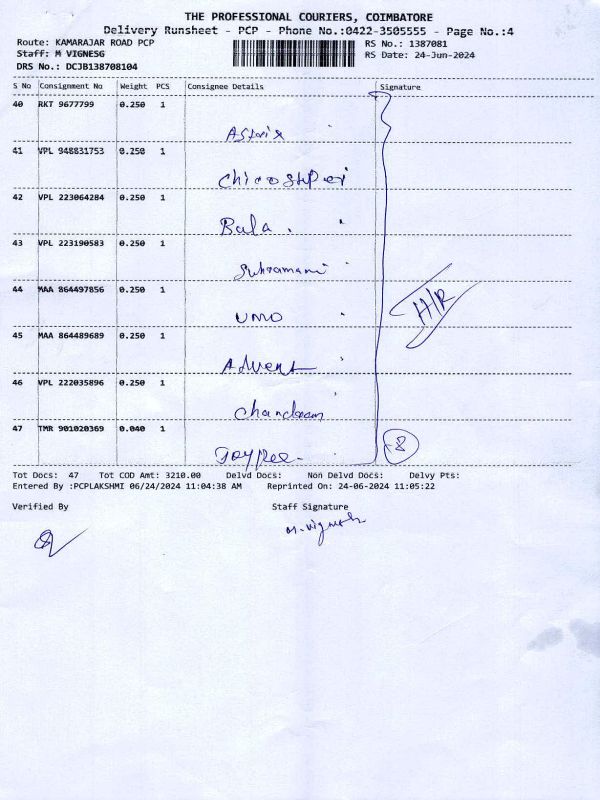 THE PROFESSIONAL COURIERS, COIMBATORE
Delivery Runsheet - PCP - Phone No.:0422-3505555 - Page No.:4
Route: KAMARAJAR ROAD PCP
RS No.: 1387081
Staff: M VIGNESG
RS Date: 24-Jun-2024
DRS No.: DCJB138708104
S No Consignment No Weight PCS Consignee Details Signature
40 RKT 9677799 0.250 1
41 VPL 948831753 0.250 1
42 VPL 223064284 0.250 1
Bala
43 VPL 223190583 0.250 1
Subramani
44 MAA 864497856 0.250 1
UMO
45 MAA 864489689 0.250 1
Advent
46 VPL 222035896 0.250 1
47 TMR 901020369 0.040 1
H/R
8
Tot Docs: 47 Tot COD Amt: 3210.00 Delvd Docs: Non Delvd Docs: Delvy Pts:
Entered By :PCPLAKSHMI 06/24/2024 11:04:38 AM Reprinted On: 24-06-2024 11:05:22
Verified By Staff Signature
M. Vignesh